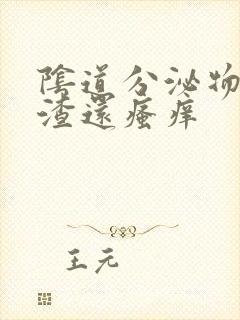 陰道分泌物
渣還瘙痒
王元